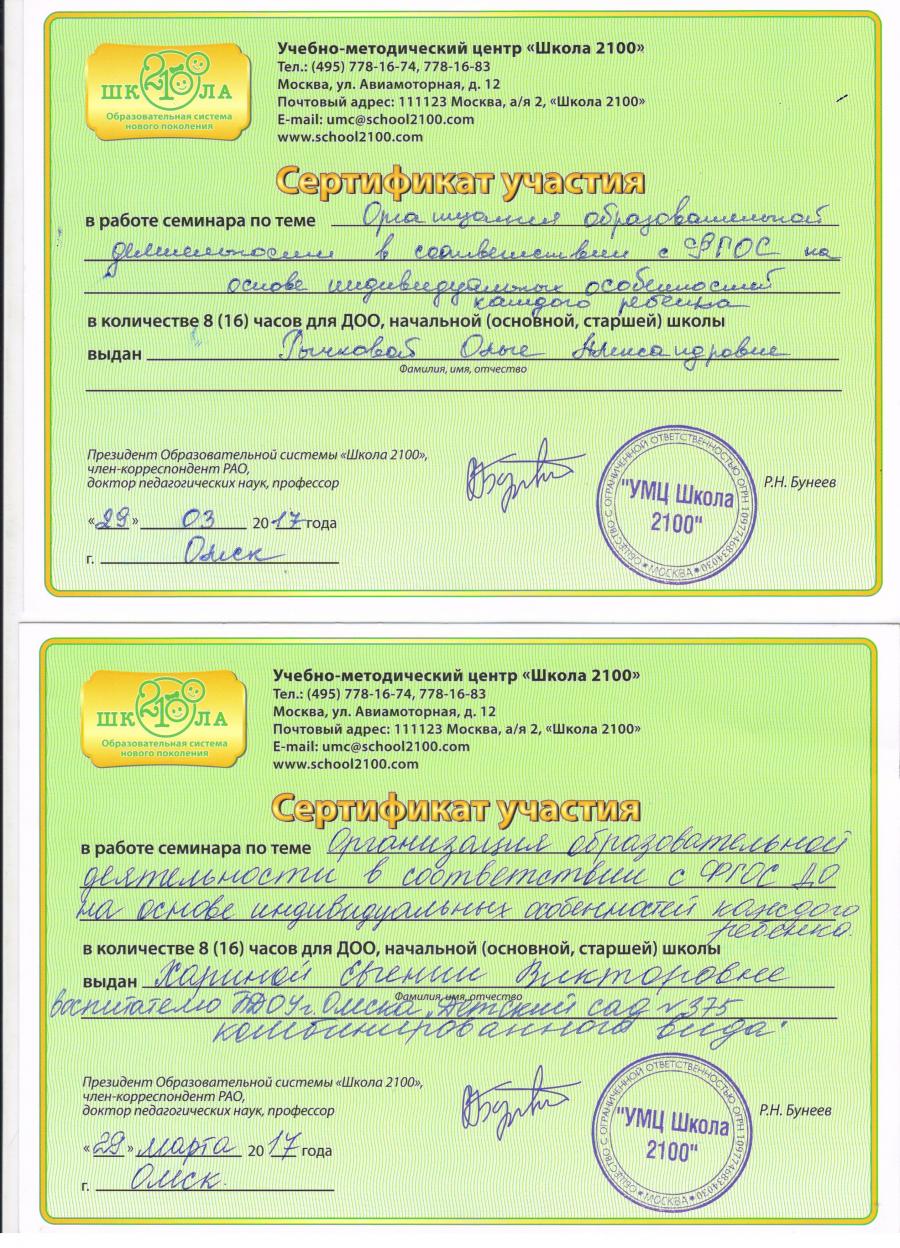 ШК 2100 ЛА
Образовательная система
нового поколения
Учебно-методический центр «Школа 2100»
Тел.: (495) 778-16-74, 778-16-83
Москва, ул. Авиамоторная, д. 12
Почтовый адрес: 111123 Москва, а/я 2, «Школа 2100»
E-mail: umc@school2100.com
www.school2100.com
Сертификат участия
в работе семинара по теме Организация образовательной
деятельности в соответствии с ФГОС на
основе индивидуальных особенностей
каждого ребенка
в количестве 8 (16) часов для ДОО, начальной (основной, старшей) школы
выдан Рычковой Ольге Александровне
Фамилия, имя, отчество
Президент Образовательной системы «Школа 2100»,
член-корреспондент РАО,
доктор педагогических наук, профессор
Р.Н. Бунеев
«29» 03 2017 года
г. Омск
ОБЩЕСТВО С ОГРАНИЧЕННОЙ ОТВЕТСТВЕННОСТЬЮ ОГРН 1097746834030
"УМЦ Школа
2100"
МОСКВА
ШК 2100 ЛА
Образовательная система
нового поколения
Учебно-методический центр «Школа 2100»
Тел.: (495) 778-16-74, 778-16-83
Москва, ул. Авиамоторная, д. 12
Почтовый адрес: 111123 Москва, а/я 2, «Школа 2100»
E-mail: umc@school2100.com
www.school2100.com
Сертификат участия
в работе семинара по теме Организация образовательной
деятельности в соответствии с ФГОС ДО
на основе индивидуальных особенностей каждого
ребенка.
в количестве 8 (16) часов для ДОО, начальной (основной, старшей) школы
выдан Хариной Евгении Викторовне
Фамилия, имя, отчество
воспитателю БДОУ г. Омска „Детский сад №375
комбинированного вида"
Президент Образовательной системы «Школа 2100»,
член-корреспондент РАО,
доктор педагогических наук, профессор
Р.Н. Бунеев
«29» марта 2017 года
г. Омск.
ОБЩЕСТВО С ОГРАНИЧЕННОЙ ОТВЕТСТВЕННОСТЬЮ ОГРН 1097746834030
"УМЦ Школа
2100"
МОСКВА